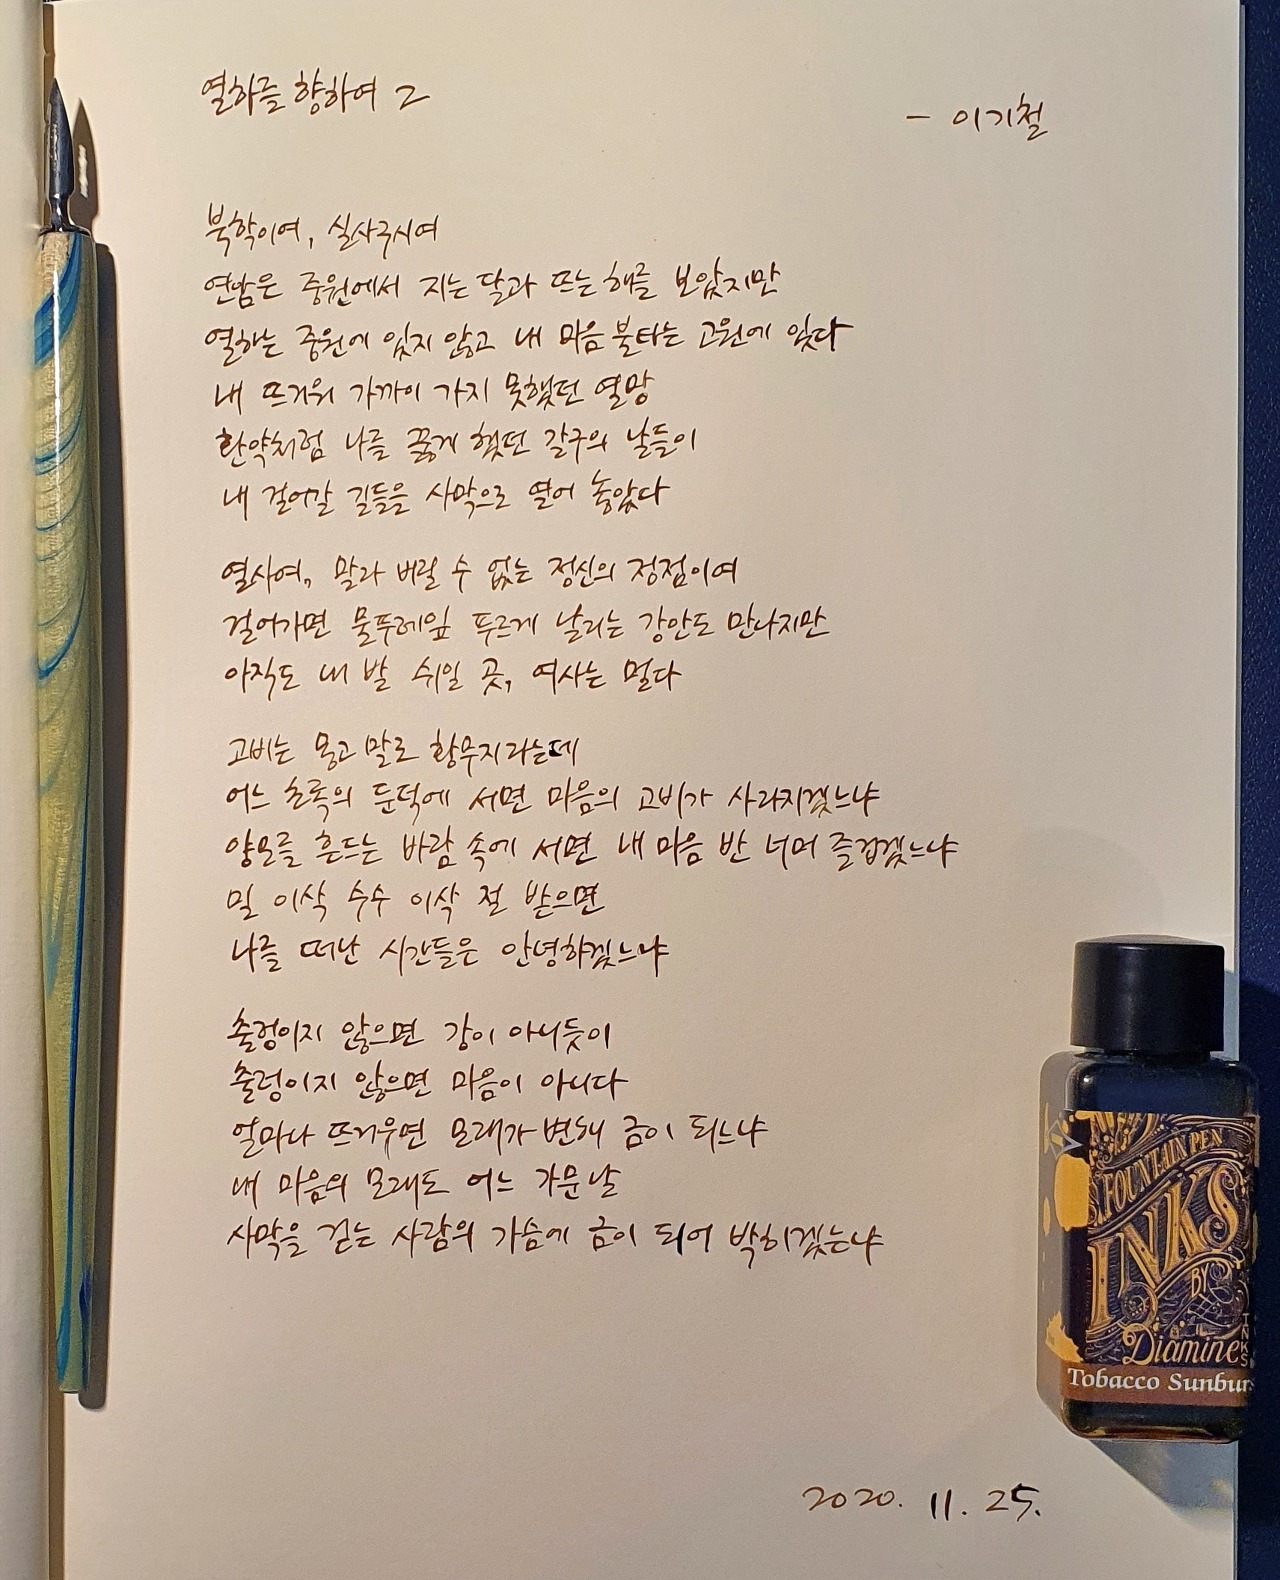 열하를 향하여 2
- 이기철
북학이여, 실사구시여
연암은 중원에서 지는 달과 뜨는 해를 보았지만
열하는 중원에 있지 않고 내 마음 불타는 고원에 있다
내 뜨거워 가까이 가지 못했던 열망
환약처럼 나를 꿇게 했던 갈구의 날들이
내 걸어갈 길들을 사막으로 열어 놓았다
열사여, 말라 버릴 수 없는 정신의 정점이여
걸어가면 물푸레잎 푸르게 날리는 강안도 만나지만
아직도 내 발 쉬일 곳, 여사는 멀다
고비는 몽고 말로 황무지라는데
어느 초록의 둔덕에 서면 마음의 고비가 사라지겠느냐
양모를 흔드는 바람 속에 서면 내 마음 반 너머 즐겁겠느냐
밀 이삭 수수 이삭 절 받으면
나를 떠난 시간들은 안녕하겠느냐
출렁이지 않으면 강이 아니듯이
출렁이지 않으면 마음이 아니다
얼마나 뜨거우면 모래가 변해 금이 되느냐
내 마음의 모래도 어느 가문 날
사막을 걷는 사람의 가슴에 금이 되어 박히겠는냐
FOUNTAIN PEN
INKS
BY
Diamine
INKS
Tobacco Sunburs
2020. 11. 25.